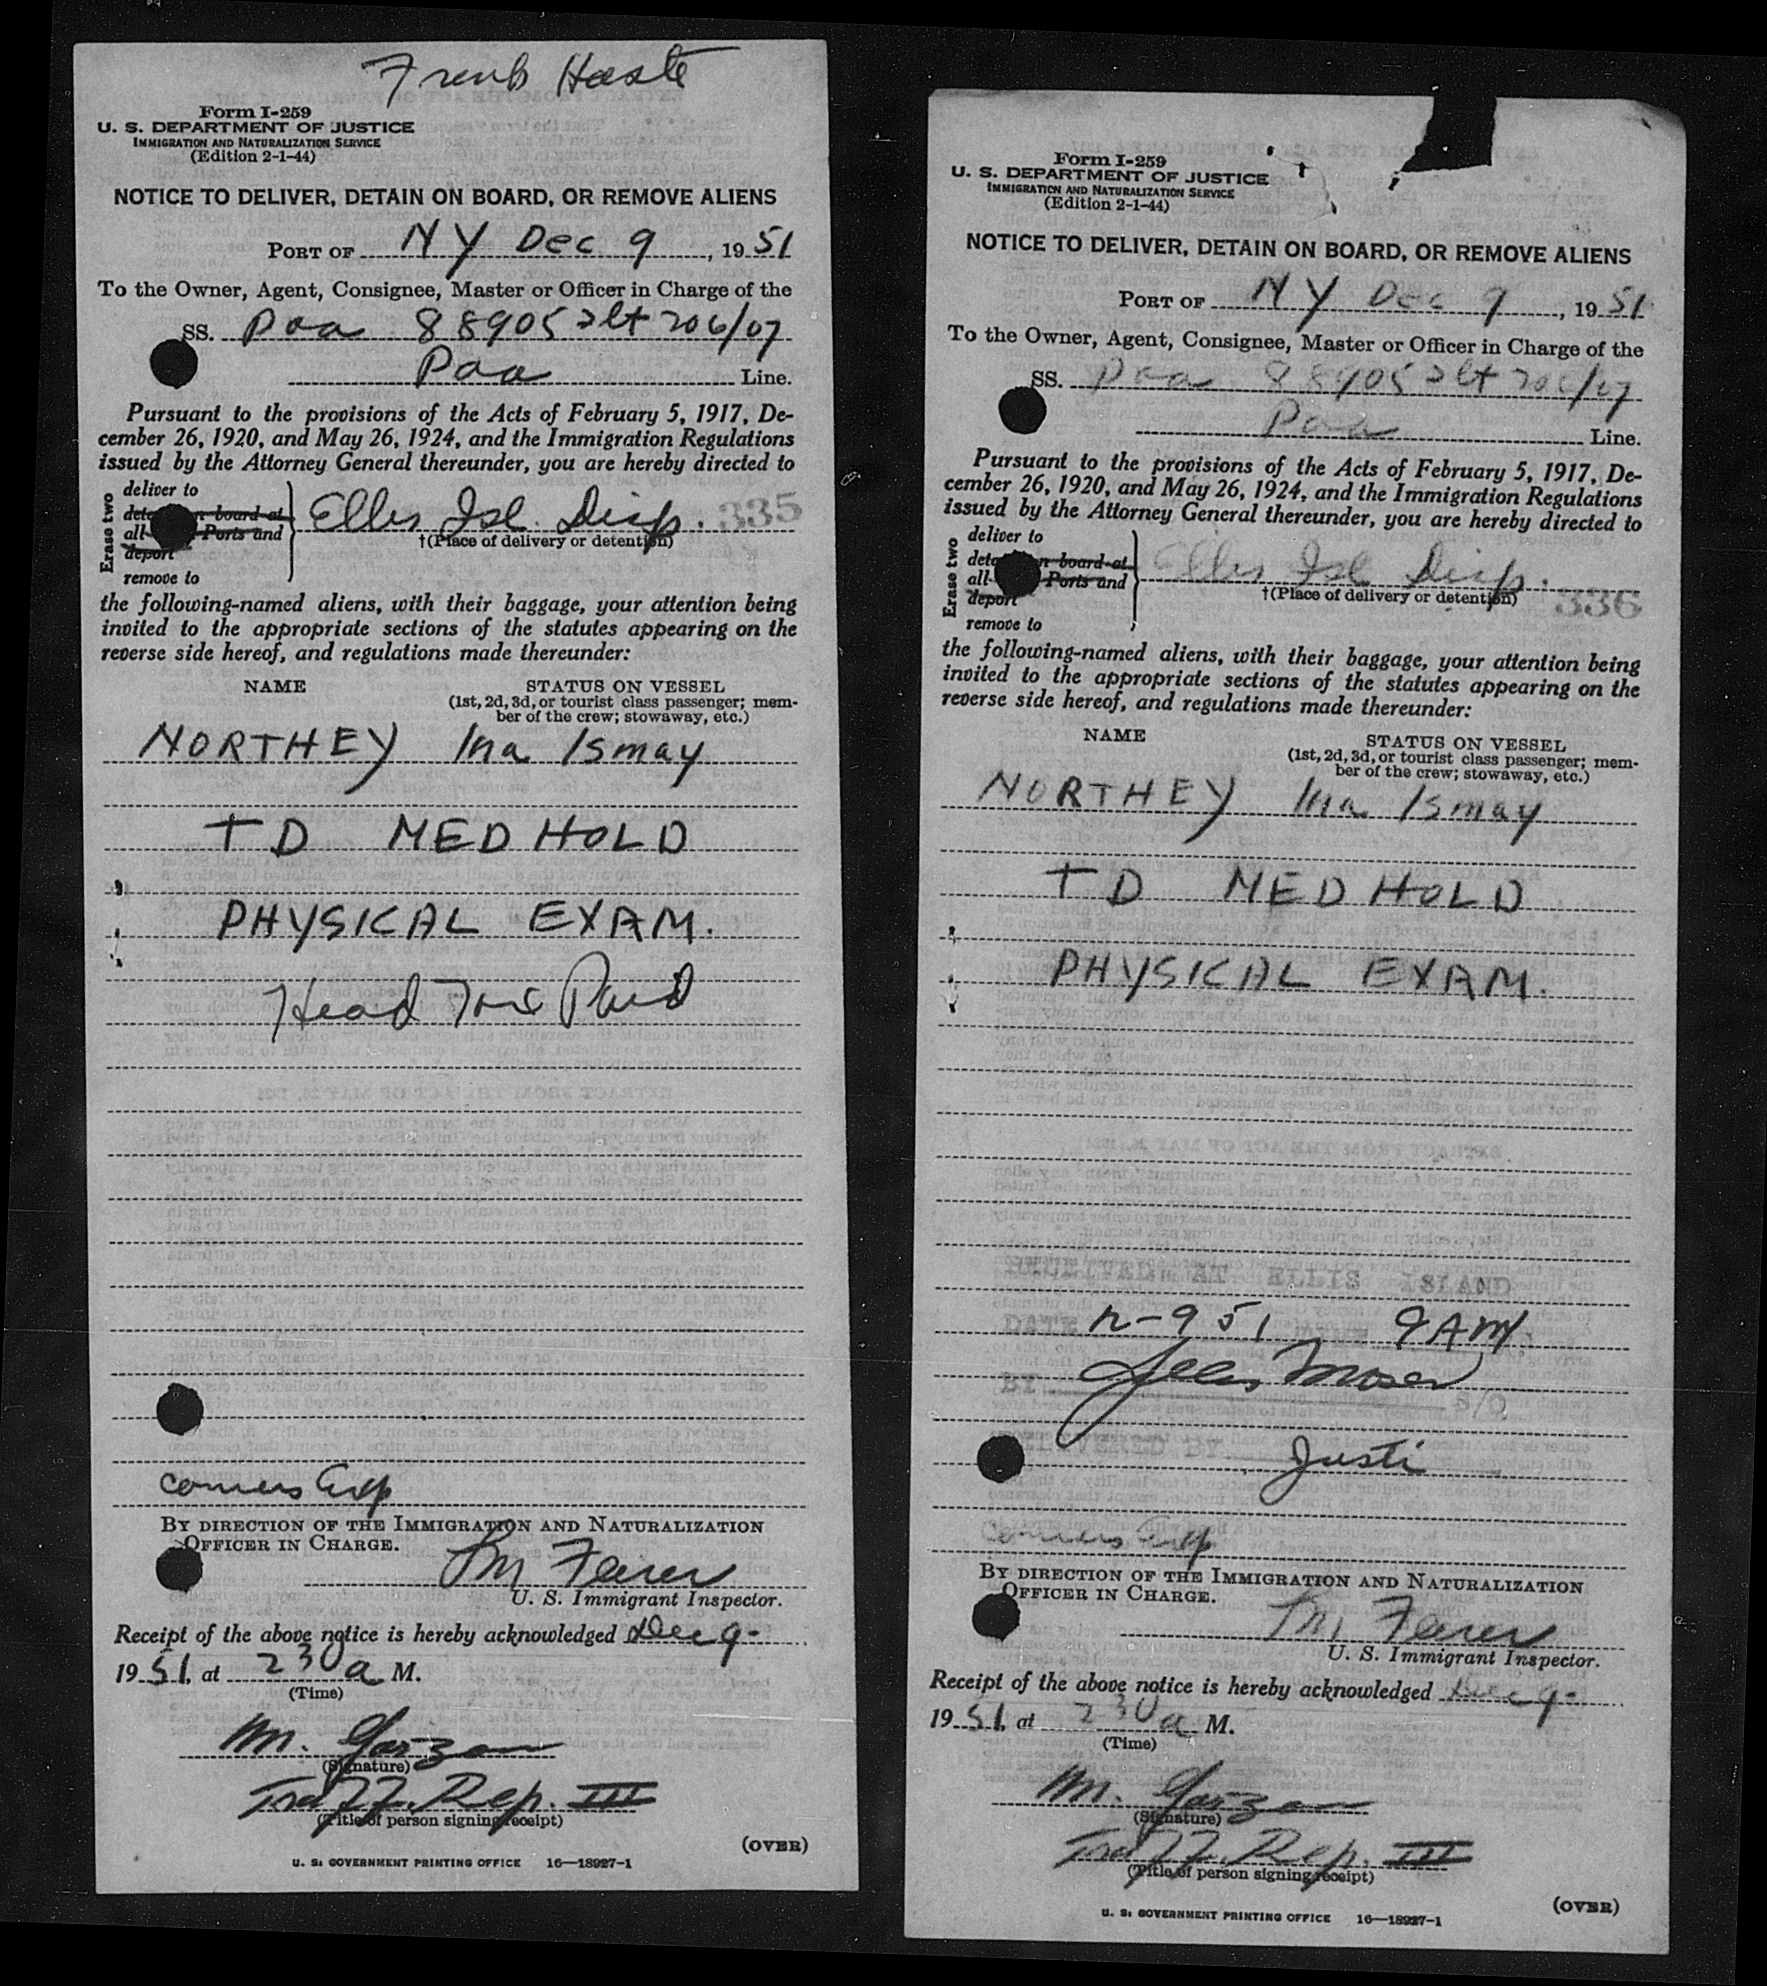 Form I-259
U. S. DEPARTMENT OF JUSTICE
IMMIGRATION AND NATURALIZATION SERVICE
(Edition 2-1-44)
NOTICE TO DELIVER, DETAIN ON BOARD, OR REMOVE ALIENS
PORT OF NY Dec 9, 1951
To the Owner, Agent, Consignee, Master or Officer in Charge of the
SS. Paa 88905 flt 206/07
Paa Line.
Pursuant to the provisions of the Acts of February 5, 1917, De-
cember 26, 1920, and May 26, 1924, and the Immigration Regulations
issued by the Attorney General thereunder, you are hereby directed to
Erase two
deliver to
board at
all Ports and
deport
remove to
Ellis Isl. Disp. 335
†(Place of delivery or detention)
the following-named aliens, with their baggage, your attention being
invited to the appropriate sections of the statutes appearing on the
reverse side hereof, and regulations made thereunder:
NAME STATUS ON VESSEL
(1st, 2d, 3d, or tourist class passenger; mem-
ber of the crew; stowaway, etc.)
NORTHEY Ina Ismay
TD MED HOLD
PHYSICAL EXAM.
Head Tax Paid
BY DIRECTION OF THE IMMIGRATION AND NATURALIZATION
OFFICER IN CHARGE.
U. S. Immigrant Inspector.
Receipt of the above notice is hereby acknowledged Dec 9-
1951, at 230 a M.
(Time)
M. Garzon
(Signature)
Traff. Rep. III
(Title of person signing receipt)
(OVER)
U. S. GOVERNMENT PRINTING OFFICE 16—18927-1
Form I-259
U. S. DEPARTMENT OF JUSTICE
IMMIGRATION AND NATURALIZATION SERVICE
(Edition 2-1-44)
NOTICE TO DELIVER, DETAIN ON BOARD, OR REMOVE ALIENS
PORT OF NY Dec 9, 1951
To the Owner, Agent, Consignee, Master or Officer in Charge of the
SS. Paa 88905 flt 206/07
Paa Line.
Pursuant to the provisions of the Acts of February 5, 1917, De-
cember 26, 1920, and May 26, 1924, and the Immigration Regulations
issued by the Attorney General thereunder, you are hereby directed to
Erase two
deliver to
board at
all Ports and
deport
remove to
Ellis Isl Disp. 336
†(Place of delivery or detention)
the following-named aliens, with their baggage, your attention being
invited to the appropriate sections of the statutes appearing on the
reverse side hereof, and regulations made thereunder:
NAME STATUS ON VESSEL
(1st, 2d, 3d, or tourist class passenger; mem-
ber of the crew; stowaway, etc.)
NORTHEY Ina Ismay
TD MED HOLD
PHYSICAL EXAM.
AT ELLIS ISLAND
DATE 12-9 51 9 AM.
BY Moser
DELIVERED BY
BY DIRECTION OF THE IMMIGRATION AND NATURALIZATION
OFFICER IN CHARGE.
U. S. Immigrant Inspector.
Receipt of the above notice is hereby acknowledged Dec 9-
1951, at 230 a M.
(Time)
M. Garzon
(Signature)
Traff. Rep. III
(Title of person signing receipt)
(OVER)
U. S. GOVERNMENT PRINTING OFFICE 16—18927-1